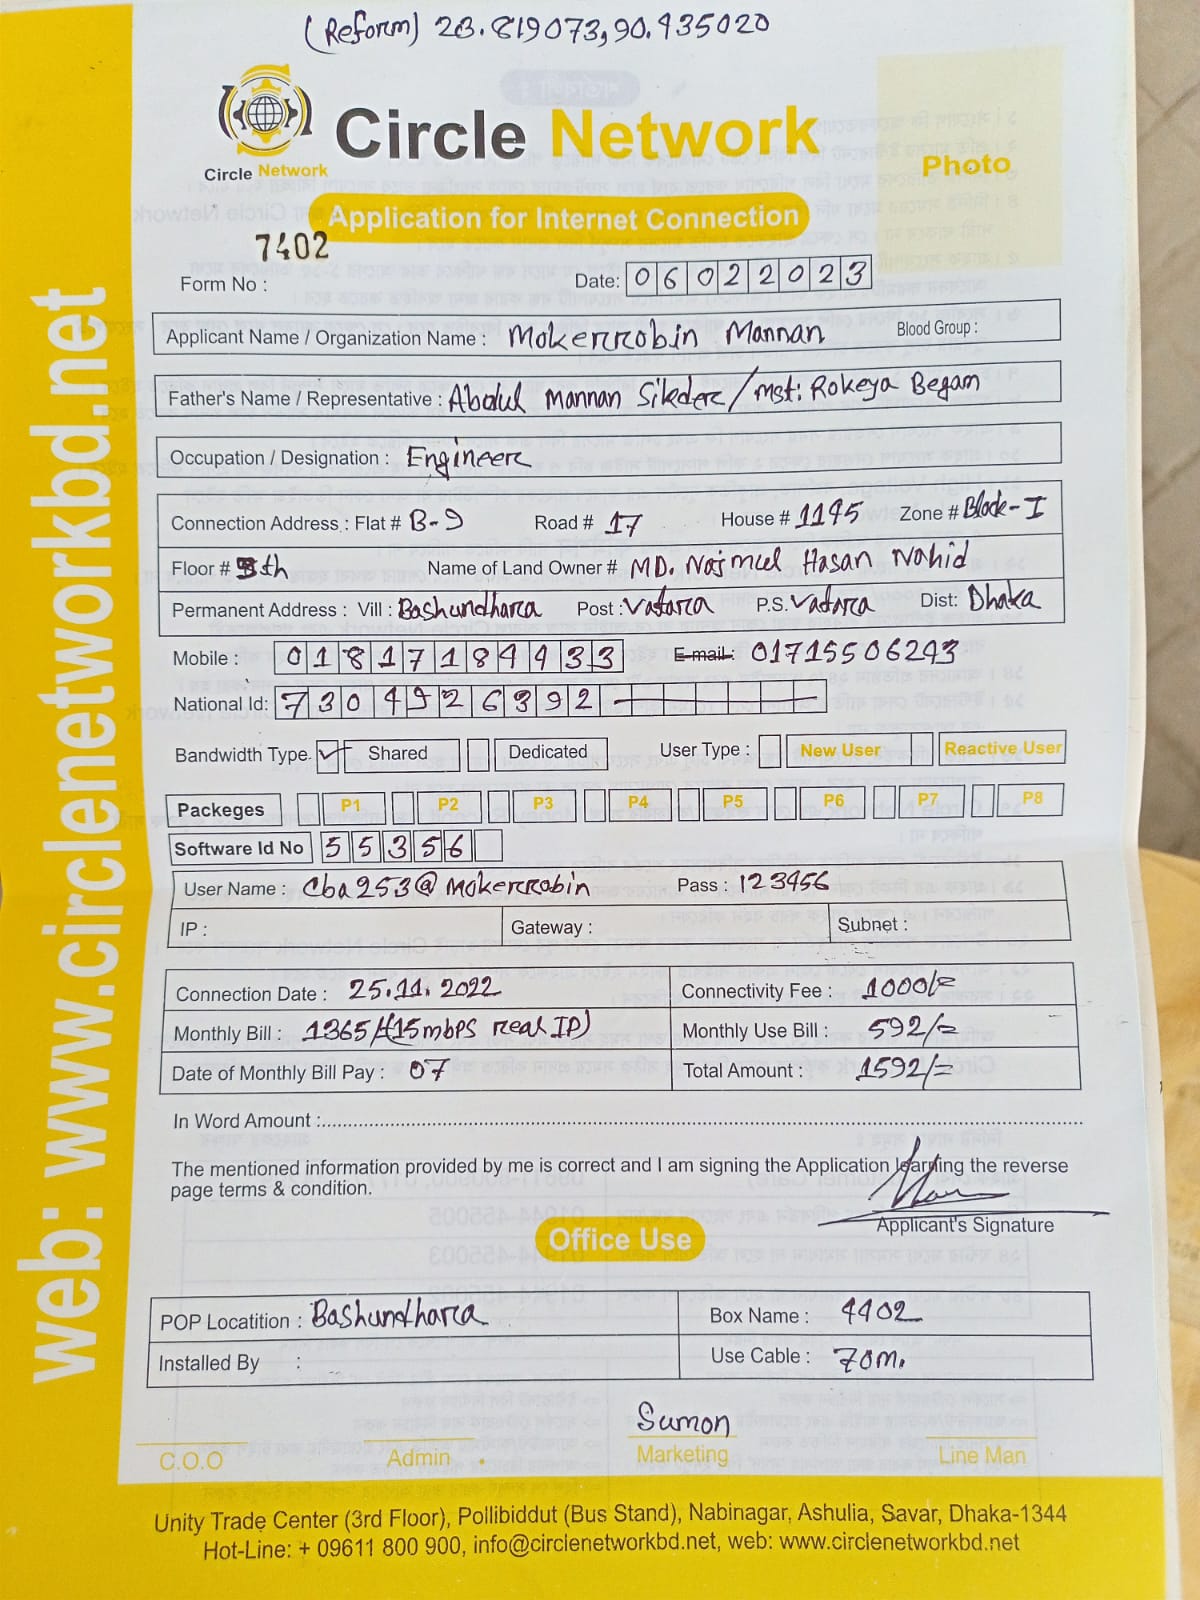 (Reform) 23.819073,90.435020
Circle Network
Circle Network
Photo
Application for Internet Connection
7402
Form No :
Date: 06022023
Applicant Name / Organization Name : Mokerrobin Mannan Blood Group :
Father's Name / Representative : Abdul Mannan Sikder / Mst: Rokeya Begam
Occupation / Designation : Engineer
Connection Address : Flat # B-9 Road # 17 House # 1145 Zone # Block-I
Floor # 8th Name of Land Owner # MD. Najmul Hasan Nahid
Permanent Address : Vill : Bashundhara Post : Vatara P.S. Vatara Dist: Dhaka
Mobile : 01817184433 E-mail: 01715506243
National Id: 7304926392
Bandwidth Type. Shared Dedicated User Type : New User Reactive User
Packeges P1 P2 P3 P4 P5 P6 P7 P8
Software Id No 55356
User Name : Cba253@mokerrobin Pass : 123456
IP : Gateway : Subnet :
Connection Date : 25.11.2022 Connectivity Fee : 1000/=
Monthly Bill : 1365/= (15mbps real IP) Monthly Use Bill : 592/=
Date of Monthly Bill Pay : 07 Total Amount : 1592/=
In Word Amount :
The mentioned information provided by me is correct and I am signing the Application learning the reverse
page terms & condition.
Applicant's Signature
Office Use
POP Locatition : Bashundhara Box Name : 4402
Installed By : Use Cable : 70m.
Sumon
C.O.O Admin Marketing Line Man
Unity Trade Center (3rd Floor), Pollibiddut (Bus Stand), Nabinagar, Ashulia, Savar, Dhaka-1344
Hot-Line: + 09611 800 900, info@circlenetworkbd.net, web: www.circlenetworkbd.net
web: www.circlenetworkbd.net